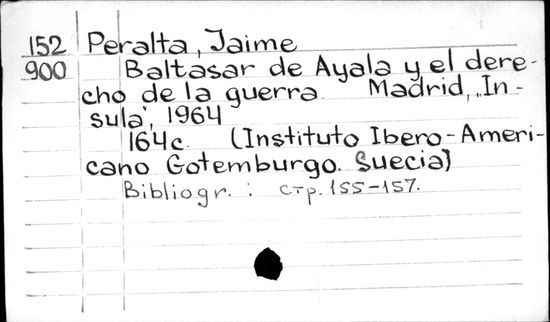 152 Peralta, Jaime
900 Baltasar de Ayala y el dere-
cho de la guerra. Madrid, „In-
sula‟, 1964
164 с. (Instituto Ibero-Ameri-
cano Gotemburgo. Suecia)
Bibliogr.: стр. 155-157.